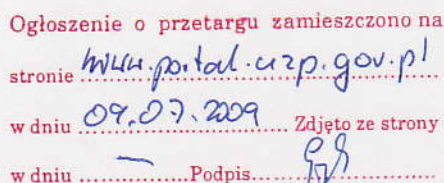 Ogłoszenie o przetargu zamieszczono na
stronie www.portal.uzp.gov.pl
w dniu 09.07.2009 Zdjęto ze strony
w dniu — Podpis